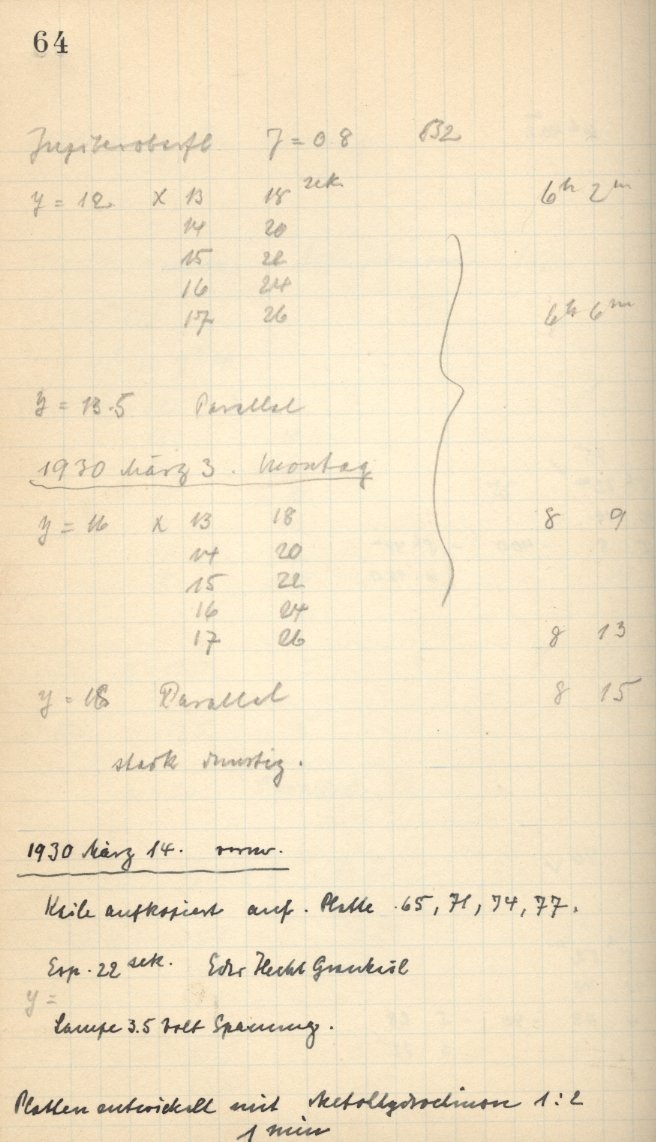 64
Jupiteroberfl J = 0.8 B2
y = 12. x 13 18 sek. 6h 2m
14 20
15 22
16 24
17 26 6h 6m
y = 13.5 Parallel
1930 März 3. Montag
y = 16 x 13 18 8 9
14 20
15 22
16 24
17 26 8 13
y = 18 Parallel 8 15
stark dunstig.
1930 März 14. vorm.
Keile aufkopiert auf. Platte 65, 71, 74, 77.
Exp. 22 sek. Eder Hecht Graukeil
y =
Lampe 3.5 Volt Spannung.
Platten entwickelt mit Metolhydrochinon 1:2
1 min